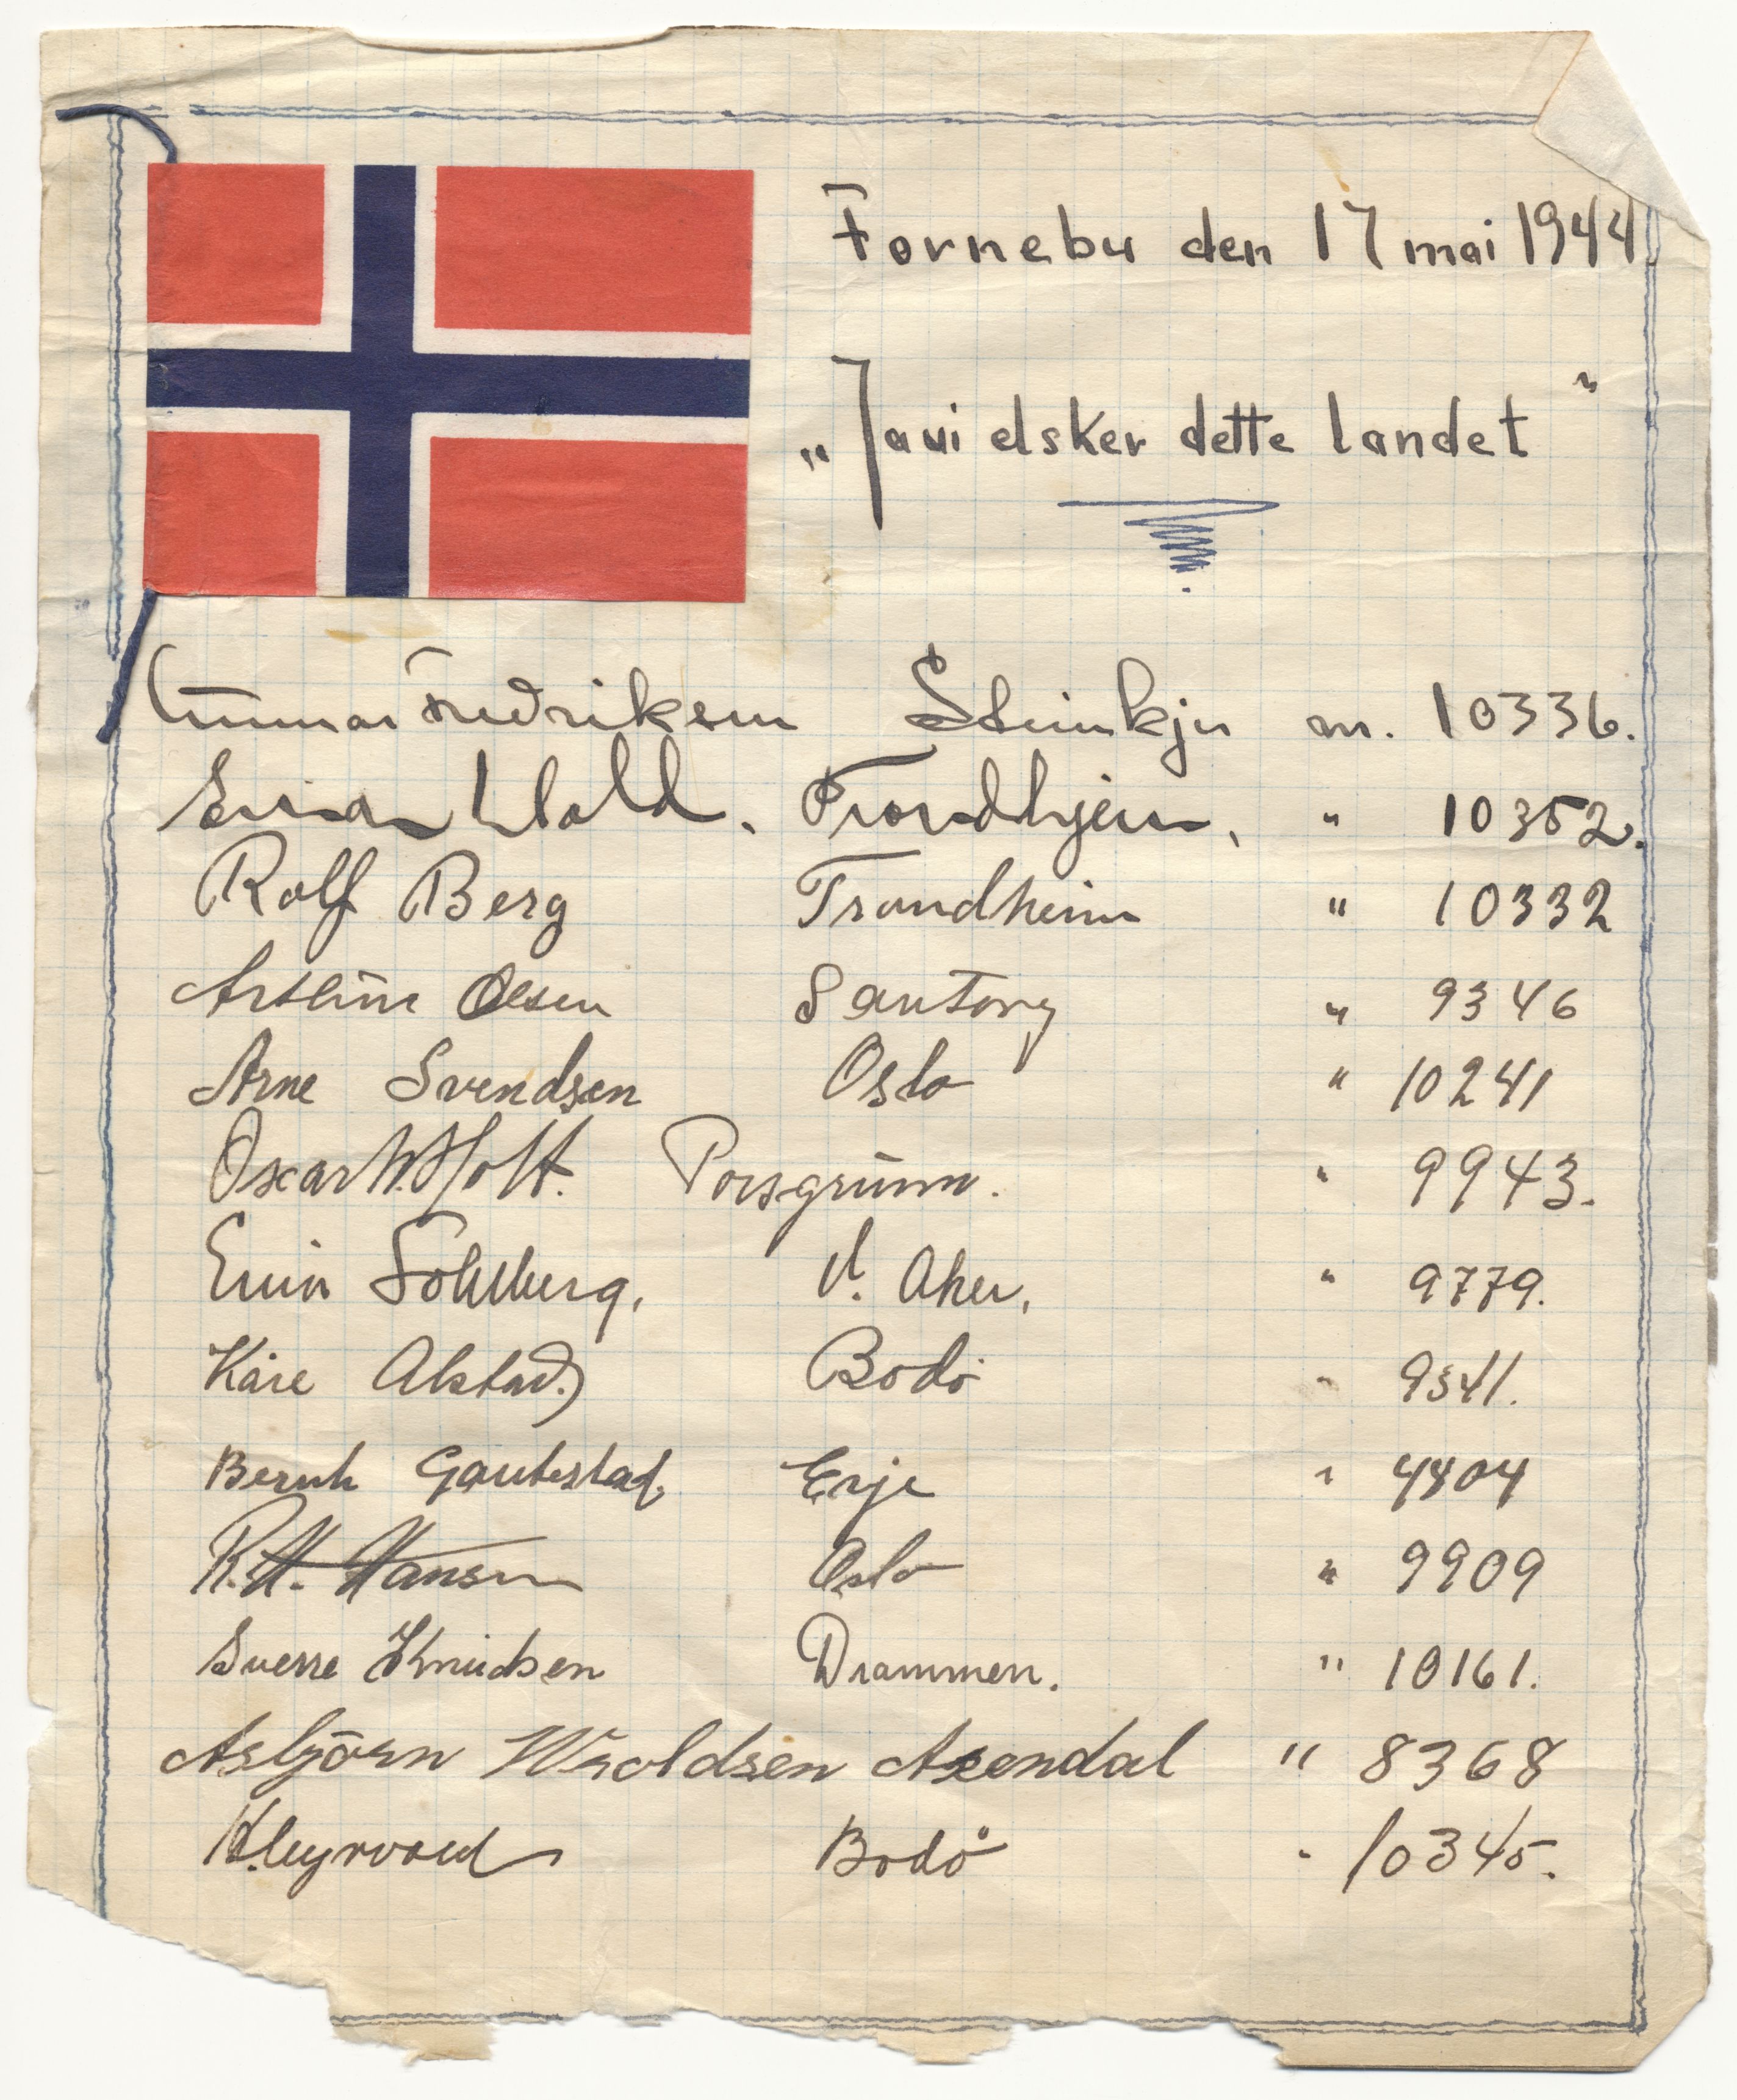 Fornebu den 17 mai 1944
„Ja vi elsker dette landet"
Gunnar Fredriksen Steinkjer nr. 10336.
Einar Wold. Trondhjem, " 10352.
Rolf Berg Trondheim " 10332
Arthur Olsen " 9346
Arne Svendsen Oslo " 10241
Oscar W. Holt. Porsgrunn. " 9943.
Einar Sohlberg, V. Aker, " 9779.
Kåre Alstad. Bodø " 9341.
Bernh Gautestad, Evje " 4404
R.H. Hansen Oslo " 9909
Sverre Knudsen Drammen. " 10161.
Asbjörn Wroldsen Arendal " 8368
Bodø " 10345.